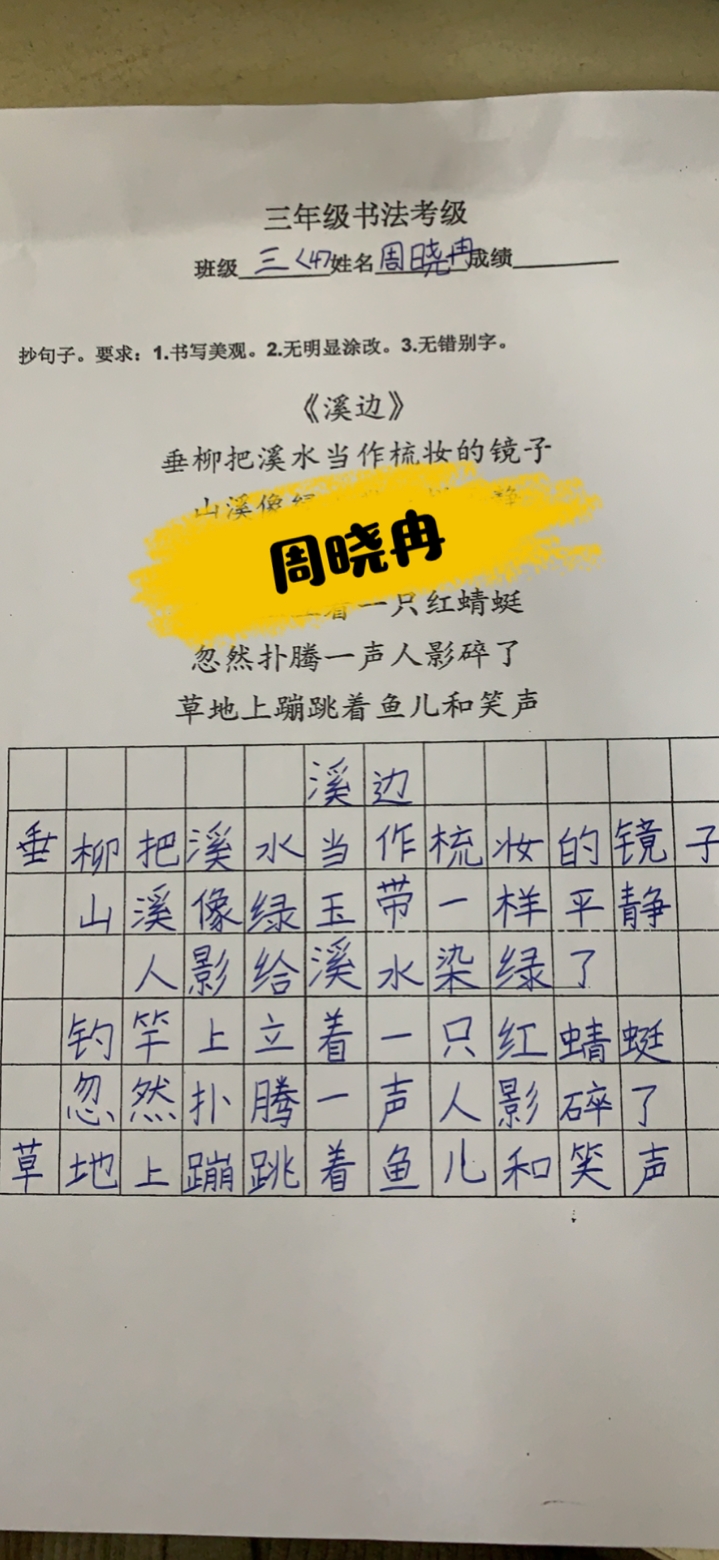 三年级书法考级
班级 三(4) 姓名 周晓冉 成绩
抄句子。要求：1.书写美观。2.无明显涂改。3.无错别字。
《溪边》
垂柳把溪水当作梳妆的镜子
山溪像
周晓冉
着一只红蜻蜓
忽然扑腾一声人影碎了
草地上蹦跳着鱼儿和笑声
溪边
垂柳把溪水当作梳妆的镜子
山溪像绿玉带一样平静
人影给溪水染绿了
钓竿上立着一只红蜻蜓
忽然扑腾一声人影碎了
草地上蹦跳着鱼儿和笑声